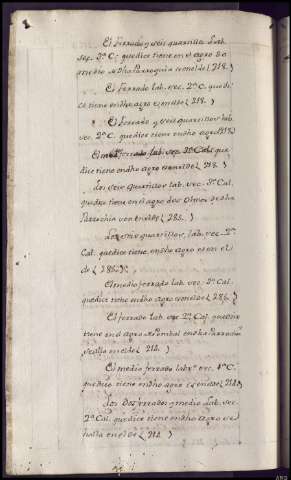 El ferrado y seis quarnillos lab.
sec. 3ª C. que dice tiene en el agro
dha Parroquia es en el de (218.)
El ferrado lab. sec. 2ª C. que di-
ce tiene en dho agro es en el de (218.)
El ferrado y seis quarnillos lab.
sec. 2ª C. que dice tiene en dho agro (218.)
El ferrado lab. sec. 3ª Cal. que
dice tiene en dho agro es en el de (218.)
Los seis quarnillos lab. sec. 3ª Cal.
que dice tiene en el agro de dha
Parrochia son en el de (285.)
Los seis quarnillos, lab. sec. 2ª
Cal. que dice tiene en dho agro es en el
de (286.)
El medio ferrado lab. sec. 2ª Cal.
que dice tiene en dho agro es en el de (286.)
El ferrado lab. sec. 2ª Cal. que dize
tiene en el agro en dha Parrochia
en el de (212.)
El medio ferrado lab. sec. 1ª C.
que dice tiene en dho agro es en el de (212.)
Los dos ferrados y medio lab. sec.
2ª Cal. que dice tiene en dho agro se
halla en el de (212.)